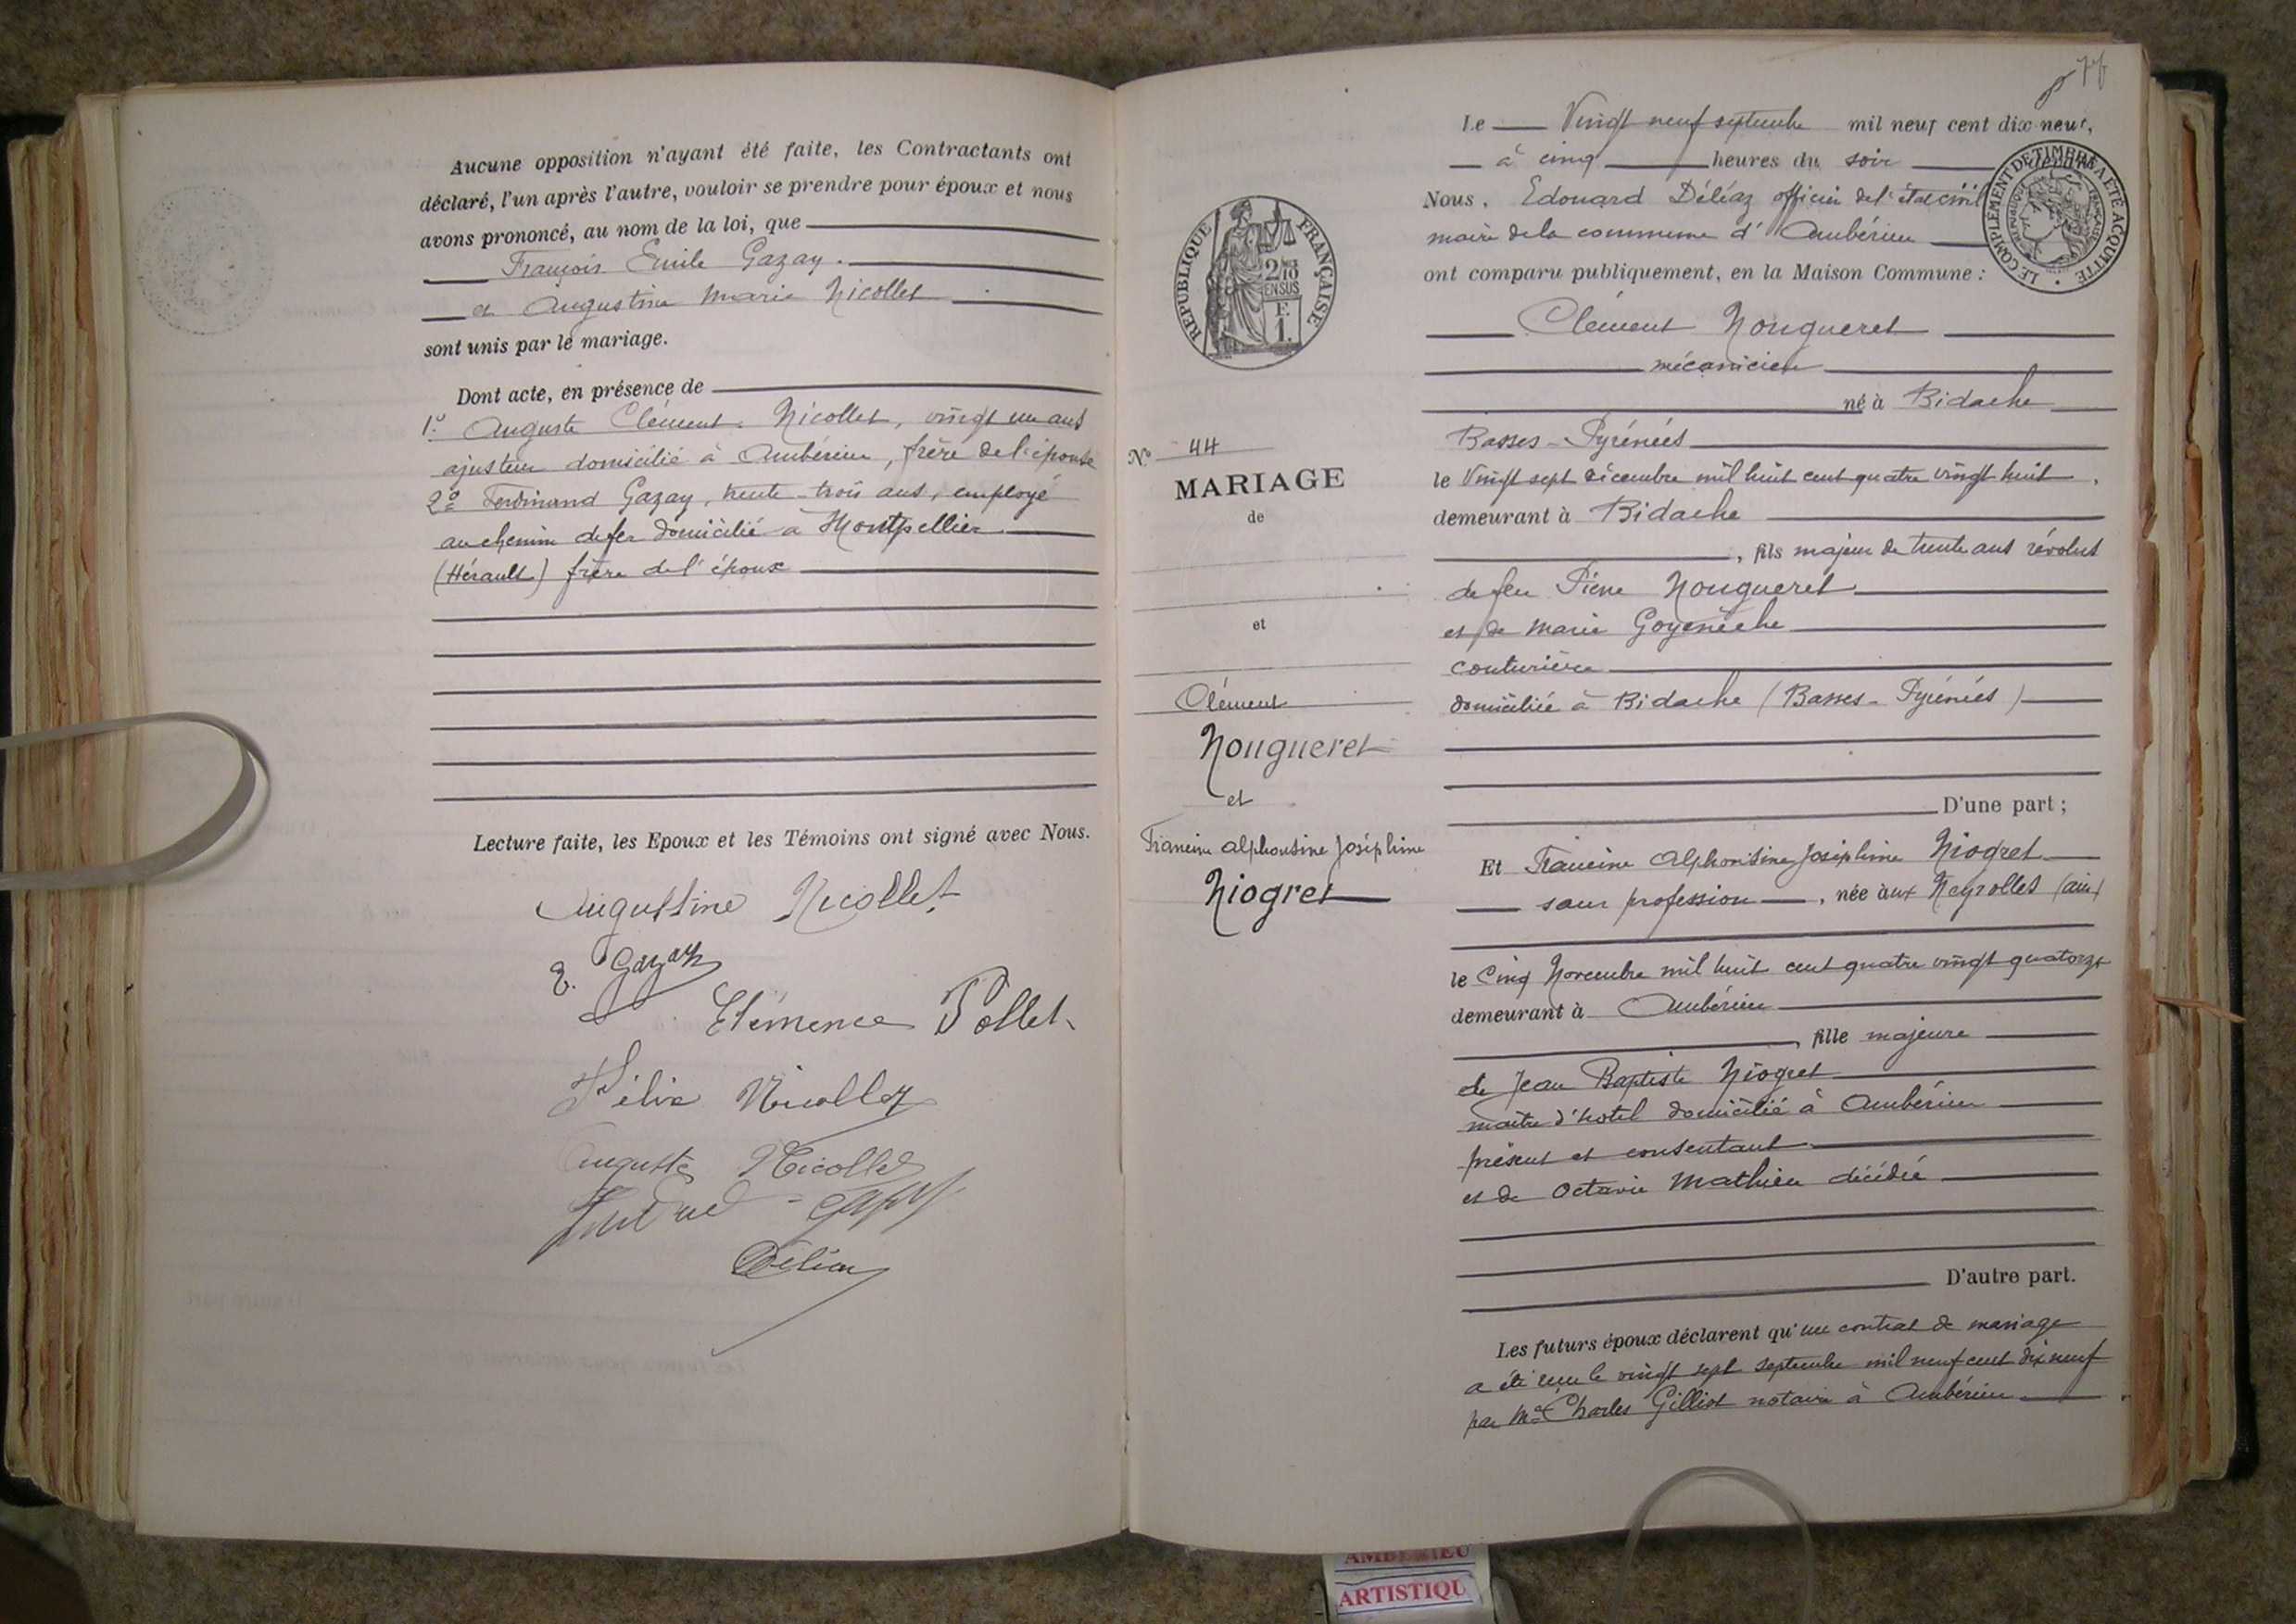 Aucune opposition n'ayant été faite, les Contractants ont
déclaré, l'un après l'autre, vouloir se prendre pour époux et nous
avons prononcé, au nom de la loi, que
François Emile Gazay.
et Augustine Marie Nicollet
sont unis par le mariage.
Dont acte, en présence de
1º Auguste Clément Nicollet, vingt un ans
ajusteur domicilié à Ambérieu, frère de l'épouse
2º Ferdinand Gazay, trente-trois ans, employé
au chemin de fer domicilié à Montpellier
(Hérault) frère de l'époux
Lecture faite, les Epoux et les Témoins ont signé avec Nous.
Augustine Nicollet
E. Gazay
Clémence Pollet
Félix Nicollet
Auguste Nicollet
Déléaz
REPUBLIQUE FRANÇAISE
2/10
EN SUS
F.
1.
Nº 44
MARIAGE
de
et
Clément
Nougueret
et
Francine Alphonsine Joséphine
Niogret
Le Vingt neuf septembre mil neuf cent dix-neuf,
à cinq heures du soir devant
LE COMPLÉMENT DE TIMBRE A ÉTÉ ACQUITTÉ
Nous, Edouard Déléaz officier de l'état civil
maire de la commune d'Ambérieu
ont comparu publiquement, en la Maison Commune :
Clément Nougueret
mécanicien
né à Bidache
Basses-Pyrénées
le Vingt sept décembre mil huit cent quatre vingt huit,
demeurant à Bidache
, fils majeur de trente ans révolus
de feu Pierre Nougueret
et de Marie Goyenèche
couturière
domiciliée à Bidache (Basses-Pyrénées)
D'une part ;
Et Francine Alphonsine Joséphine Niogret
sans profession, née aux Neyrolles (ain)
le Cinq Novembre mil huit cent quatre vingt quatorze
demeurant à Ambérieu
, fille majeure
de Jean Baptiste Niogret
maître d'hotel domicilié à Ambérieu
présent et consentant
et de Octavie Mathieu décédée
D'autre part.
Les futurs époux déclarent qu'un contrat de mariage
a été reçu le vingt sept septembre mil neuf cent dix neuf
par Me Charles Gilliot notaire à Ambérieu
AMBERIEU
ARTISTIQU